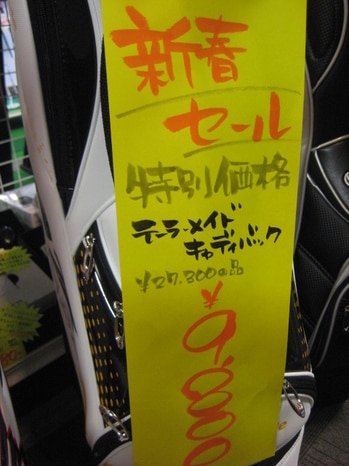 新春
セール
特別価格
テーラーメイド
キャディバック
¥27.300の品
¥9,800